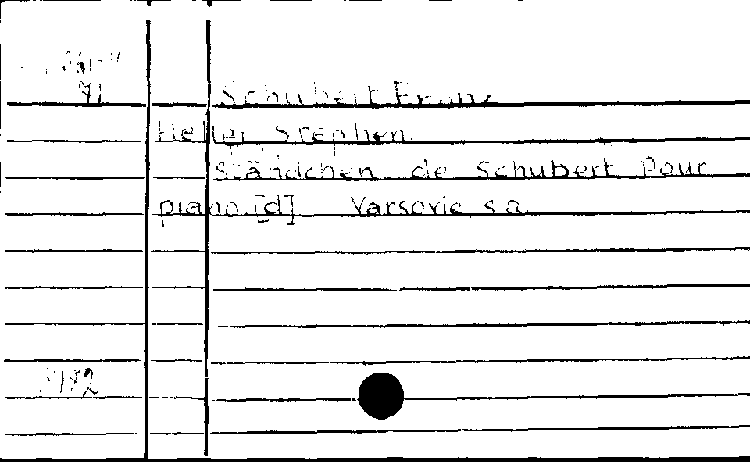 71
Schubert Franz
Heller Stephen.
Ständchen de Schubert pour
piano. [d] Varsovie s.a.